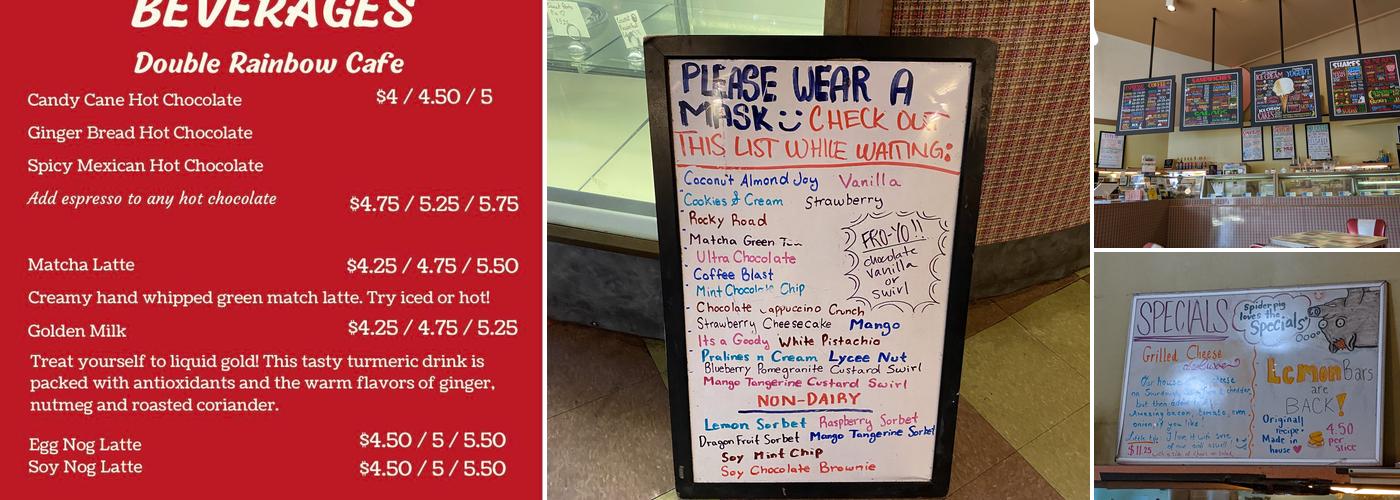 BEVERAGES
Double Rainbow Cafe
Candy Cane Hot Chocolate $4 / 4.50 / 5
Ginger Bread Hot Chocolate
Spicy Mexican Hot Chocolate
Add espresso to any hot chocolate $4.75 / 5.25 / 5.75
Matcha Latte $4.25 / 4.75 / 5.50
Creamy hand whipped green match latte. Try iced or hot!
Golden Milk $4.25 / 4.75 / 5.25
Treat yourself to liquid gold! This tasty turmeric drink is
packed with antioxidants and the warm flavors of ginger,
nutmeg and roasted coriander.
Egg Nog Latte $4.50 / 5 / 5.50
Soy Nog Latte $4.50 / 5 / 5.50
PLEASE WEAR A
MASK CHECK OUT
THIS LIST WHILE WAITING:
Coconut Almond Joy Vanilla
Cookies & Cream Strawberry
Rocky Road
Matcha Green
Ultra Chocolate
Coffee Blast
Mint Chocolate Chip
FRO-YO!!
chocolate
vanilla
or
swirl
Chocolate Cappuccino Crunch
Strawberry Cheesecake Mango
Its a Goody White Pistachio
Pralines n Cream Lycee Nut
Blueberry Pomegranite Custard Swirl
Mango Tangerine Custard Swirl
NON-DAIRY
Lemon Sorbet Raspberry Sorbet
Dragon Fruit Sorbet Mango Tangerine Sorbet
Soy Mint Chip
Soy Chocolate Brownie
COFFEE
SANDWICHES
SALADS
ICE CREAM YOGURT
ICE CREAM
CAKES
SHAKES
SPECIALS
Spider pig
loves the
Specials!
Grilled Cheese
Our house cheese
on Sourdough cheddar,
but then add
Amazing bacon, tomato, even
onion if you like!
Little tip: I love it with some
of our
$11.25
Lemon Bars
are
BACK!
Original
recipe!
Made in
house
4.50
per
slice